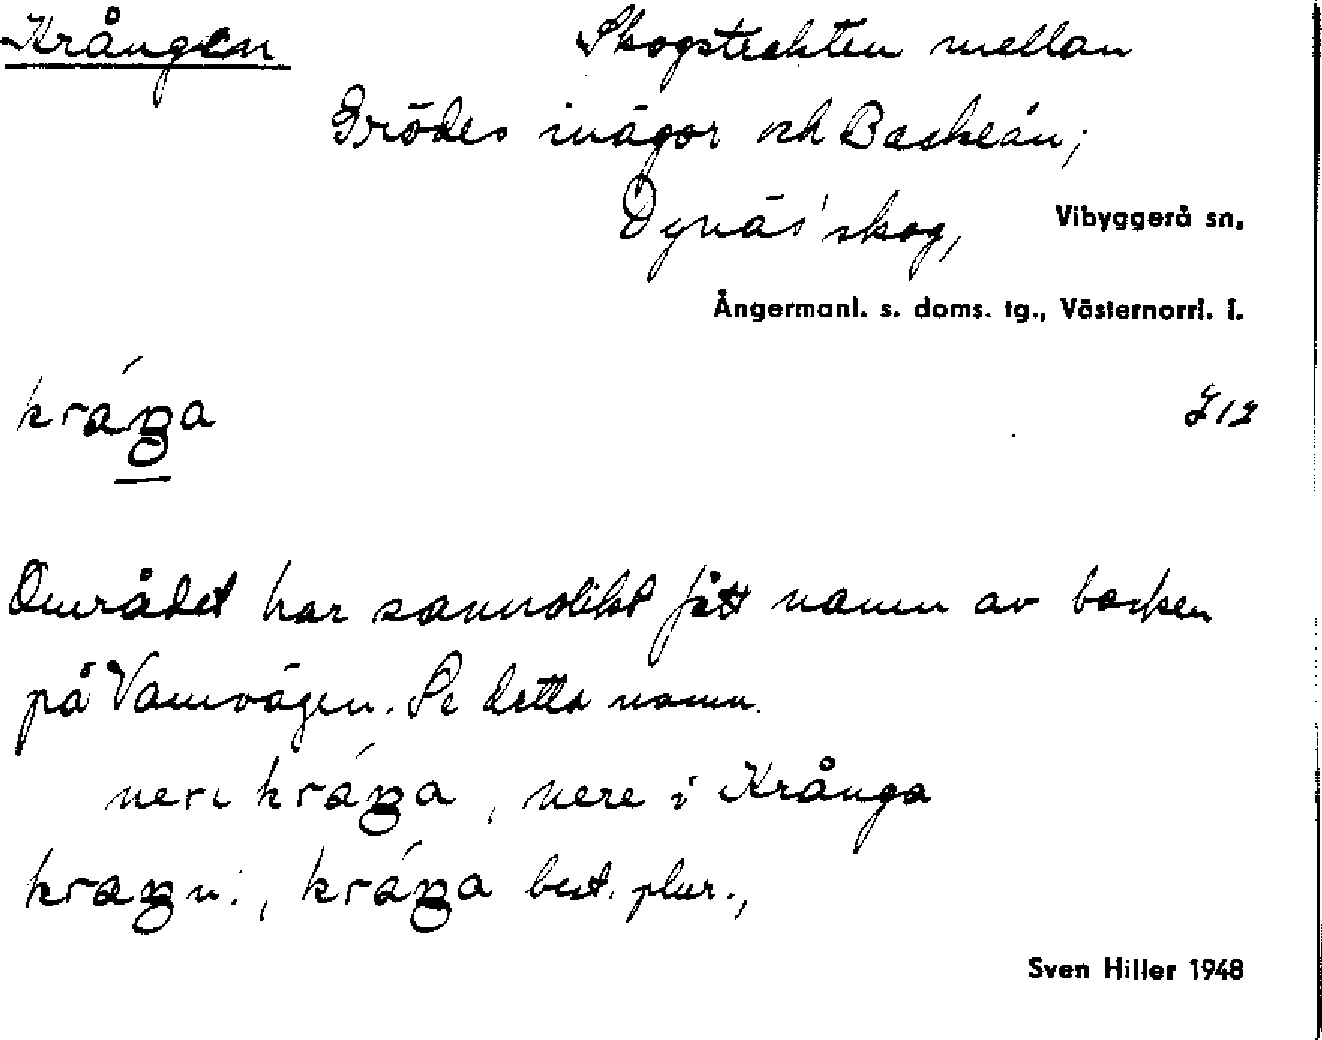 Krången Skogstrakten mellan
Grödes inägor och Backeån;
Dynäs' skog, Vibyggerå sn,
Ångermanl. s. doms. tg., Västernorrl. l.
kráŋa
Området har sannolikt fått namn av backen
på Vamvägen. Se detta namn.
neri kráŋa, nere i Krånga
kraŋn:, kráŋa best. plur.,
Sven Hiller 1948